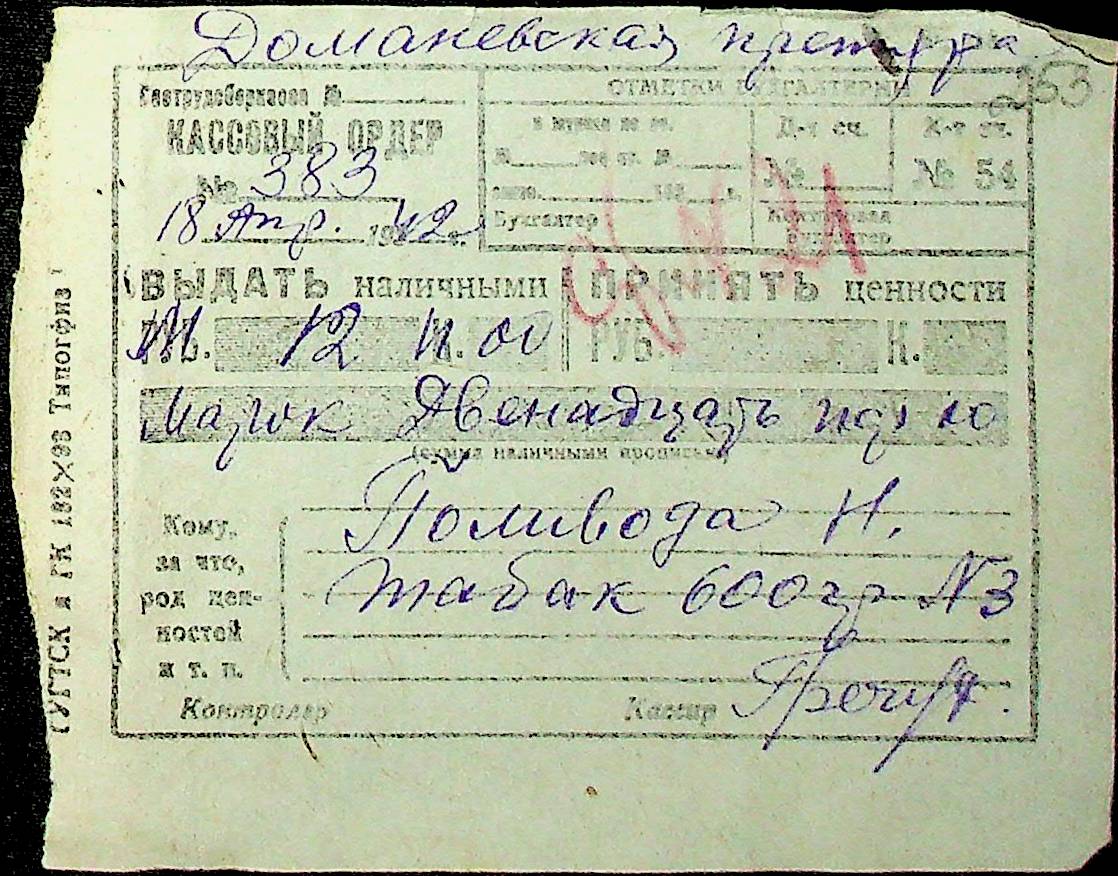 Доманевская претура
253
Гострудсберкасса №
КАССОВЫЙ ОРДЕР
№ 383
18 Апр. 1942 г.
ОТМЕТКИ БУХГАЛТЕРИИ
Бухгалтер
Д-т сч.
№
К-т сч.
№ 54
Контролер
бухгалтер
ВЫДАТЬ наличными
М. 12 п. 00
ПРИНЯТЬ ценности
РУБ. К.
Марок Двенадцать
(сумма наличными прописью)
Кому,
за что,
род цен-
ностей
и т. п.
Поливода Н.
табак 600 гр N3
Контролер
Кассир
ГУГТСК и ГК 182×08 Типогфиз